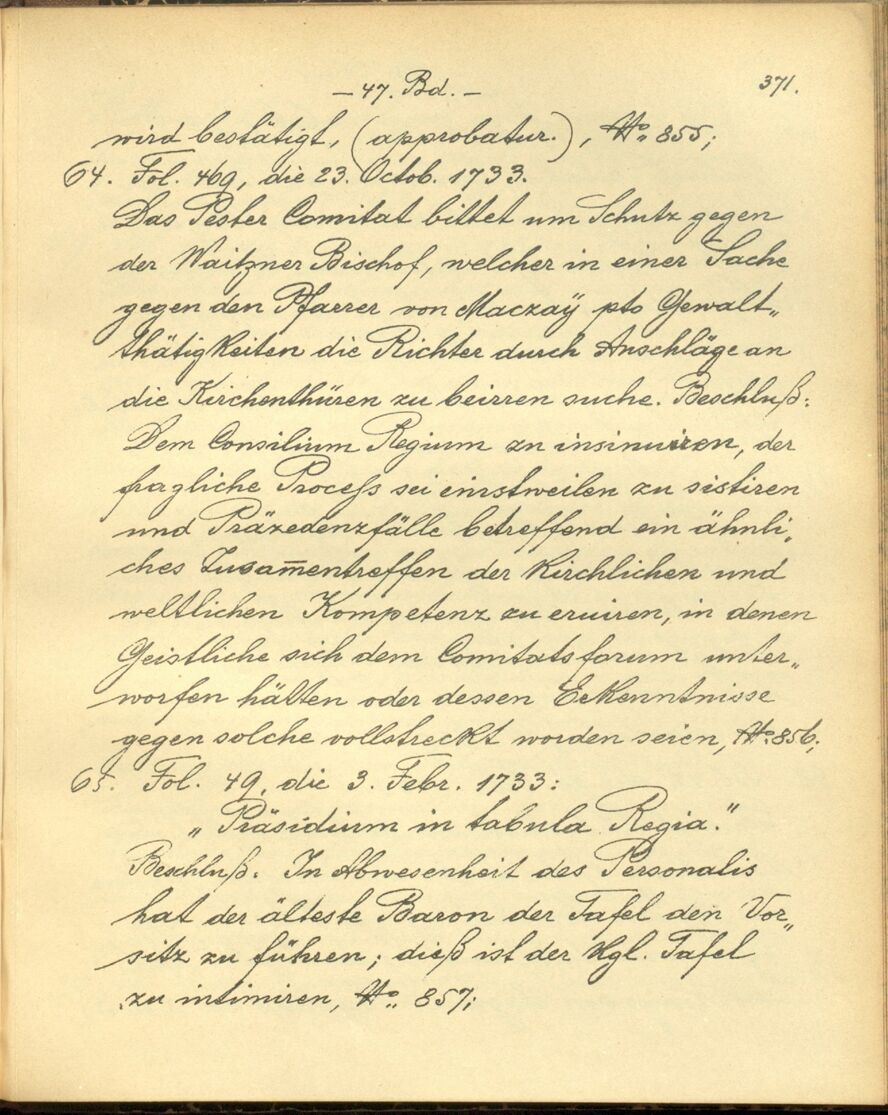 — 47. Bd. —
371.
wird bestätigt, (approbatur.), No. 855;
64. Fol. 469, die 23. Octob. 1733.
Das Pester Comitat bittet um Schutz gegen
der Waitzner Bischof, welcher in einer Sache
gegen den Pfarrer von Maczaÿ pto Gewalt„
thätigkeiten die Richter durch Anschläge an
die Kirchenthüren zu beirren suche. Beschluß:
Dem Consilium Regium zu insinuiren, der
fragliche Proceß sei einstweilen zu sistiren
und Präzedenzfälle betreffend ein ähnli„
ches Zusam̅entreffen der kirchlichen und
weltlichen Kompetenz zu eruiren, in denen
Geistliche sich dem Comitatsforum unter„
worfen hätten oder dessen Erkenntnisse
gegen solche vollstreckt worden seien, No. 856;
65. Fol. 49, die 3. Febr. 1733:
„Präsidium in tabula Regia."
Beschluß. In Abwesenheit des Personalis
hat der älteste Baron der Tafel den Vor„
sitz zu führen; dieß ist der kgl. Tafel
zu intimiren, No. 857;